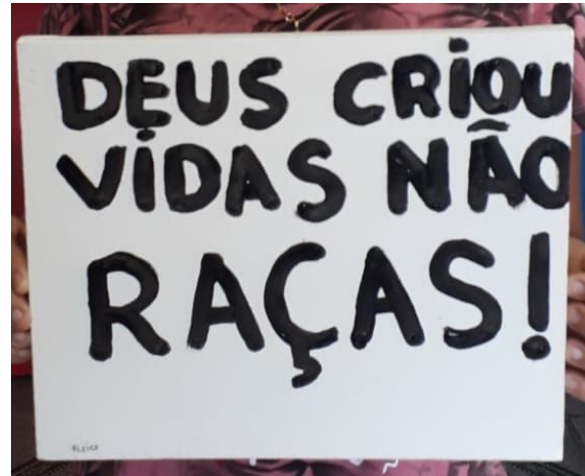 DEUS CRIOU
VIDAS NÃO
RAÇAS!